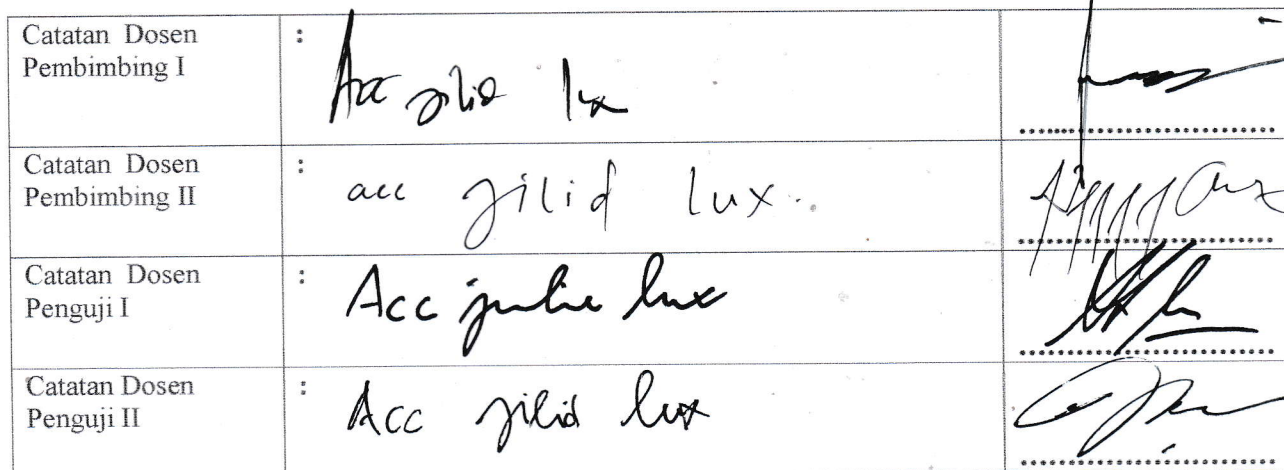 Catatan Dosen
Pembimbing I
:
Acc jilid lux
Catatan Dosen
Pembimbing II
:
acc jilid lux.
Catatan Dosen
Penguji I
:
Acc jilid lux
Catatan Dosen
Penguji II
:
Acc jilid lux